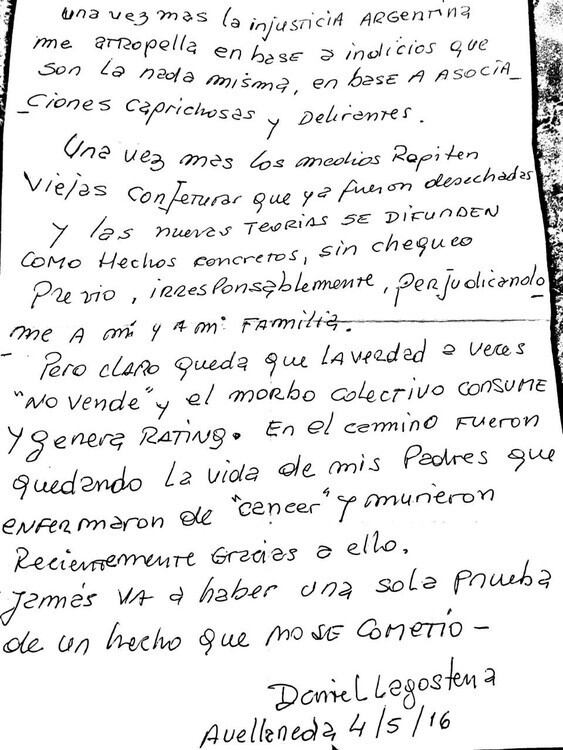 Una vez mas la injusticia ARGENTINA
me atropella en base a indicios que
son la nada misma, en base A ASOCIA_
_ciones caprichosas y Delirantes.
Una vez mas los medios Repiten
Viejas conjeturas que ya fueron desechadas
y las nuevas TEORIAS SE DIFUNDEN
COMO Hechos concretos, sin chequeo
Previo, irresponsablemente, perjudicando_
_me A mí y A mi FAMILIA.
Pero claro queda que LA VERDAD a veces
"NO VENDE" y el morbo colectivo CONSUME
Y genera RATING. En el camino FUERON
quedando la vida de mis Padres que
ENFERMARON de "cancer" y murieron
Recientemente Gracias a ello.
Jamás VA a haber una sola prueba
de un hecho que no SE COMETIO -
Daniel Lagostena
Avellaneda 4/5/16